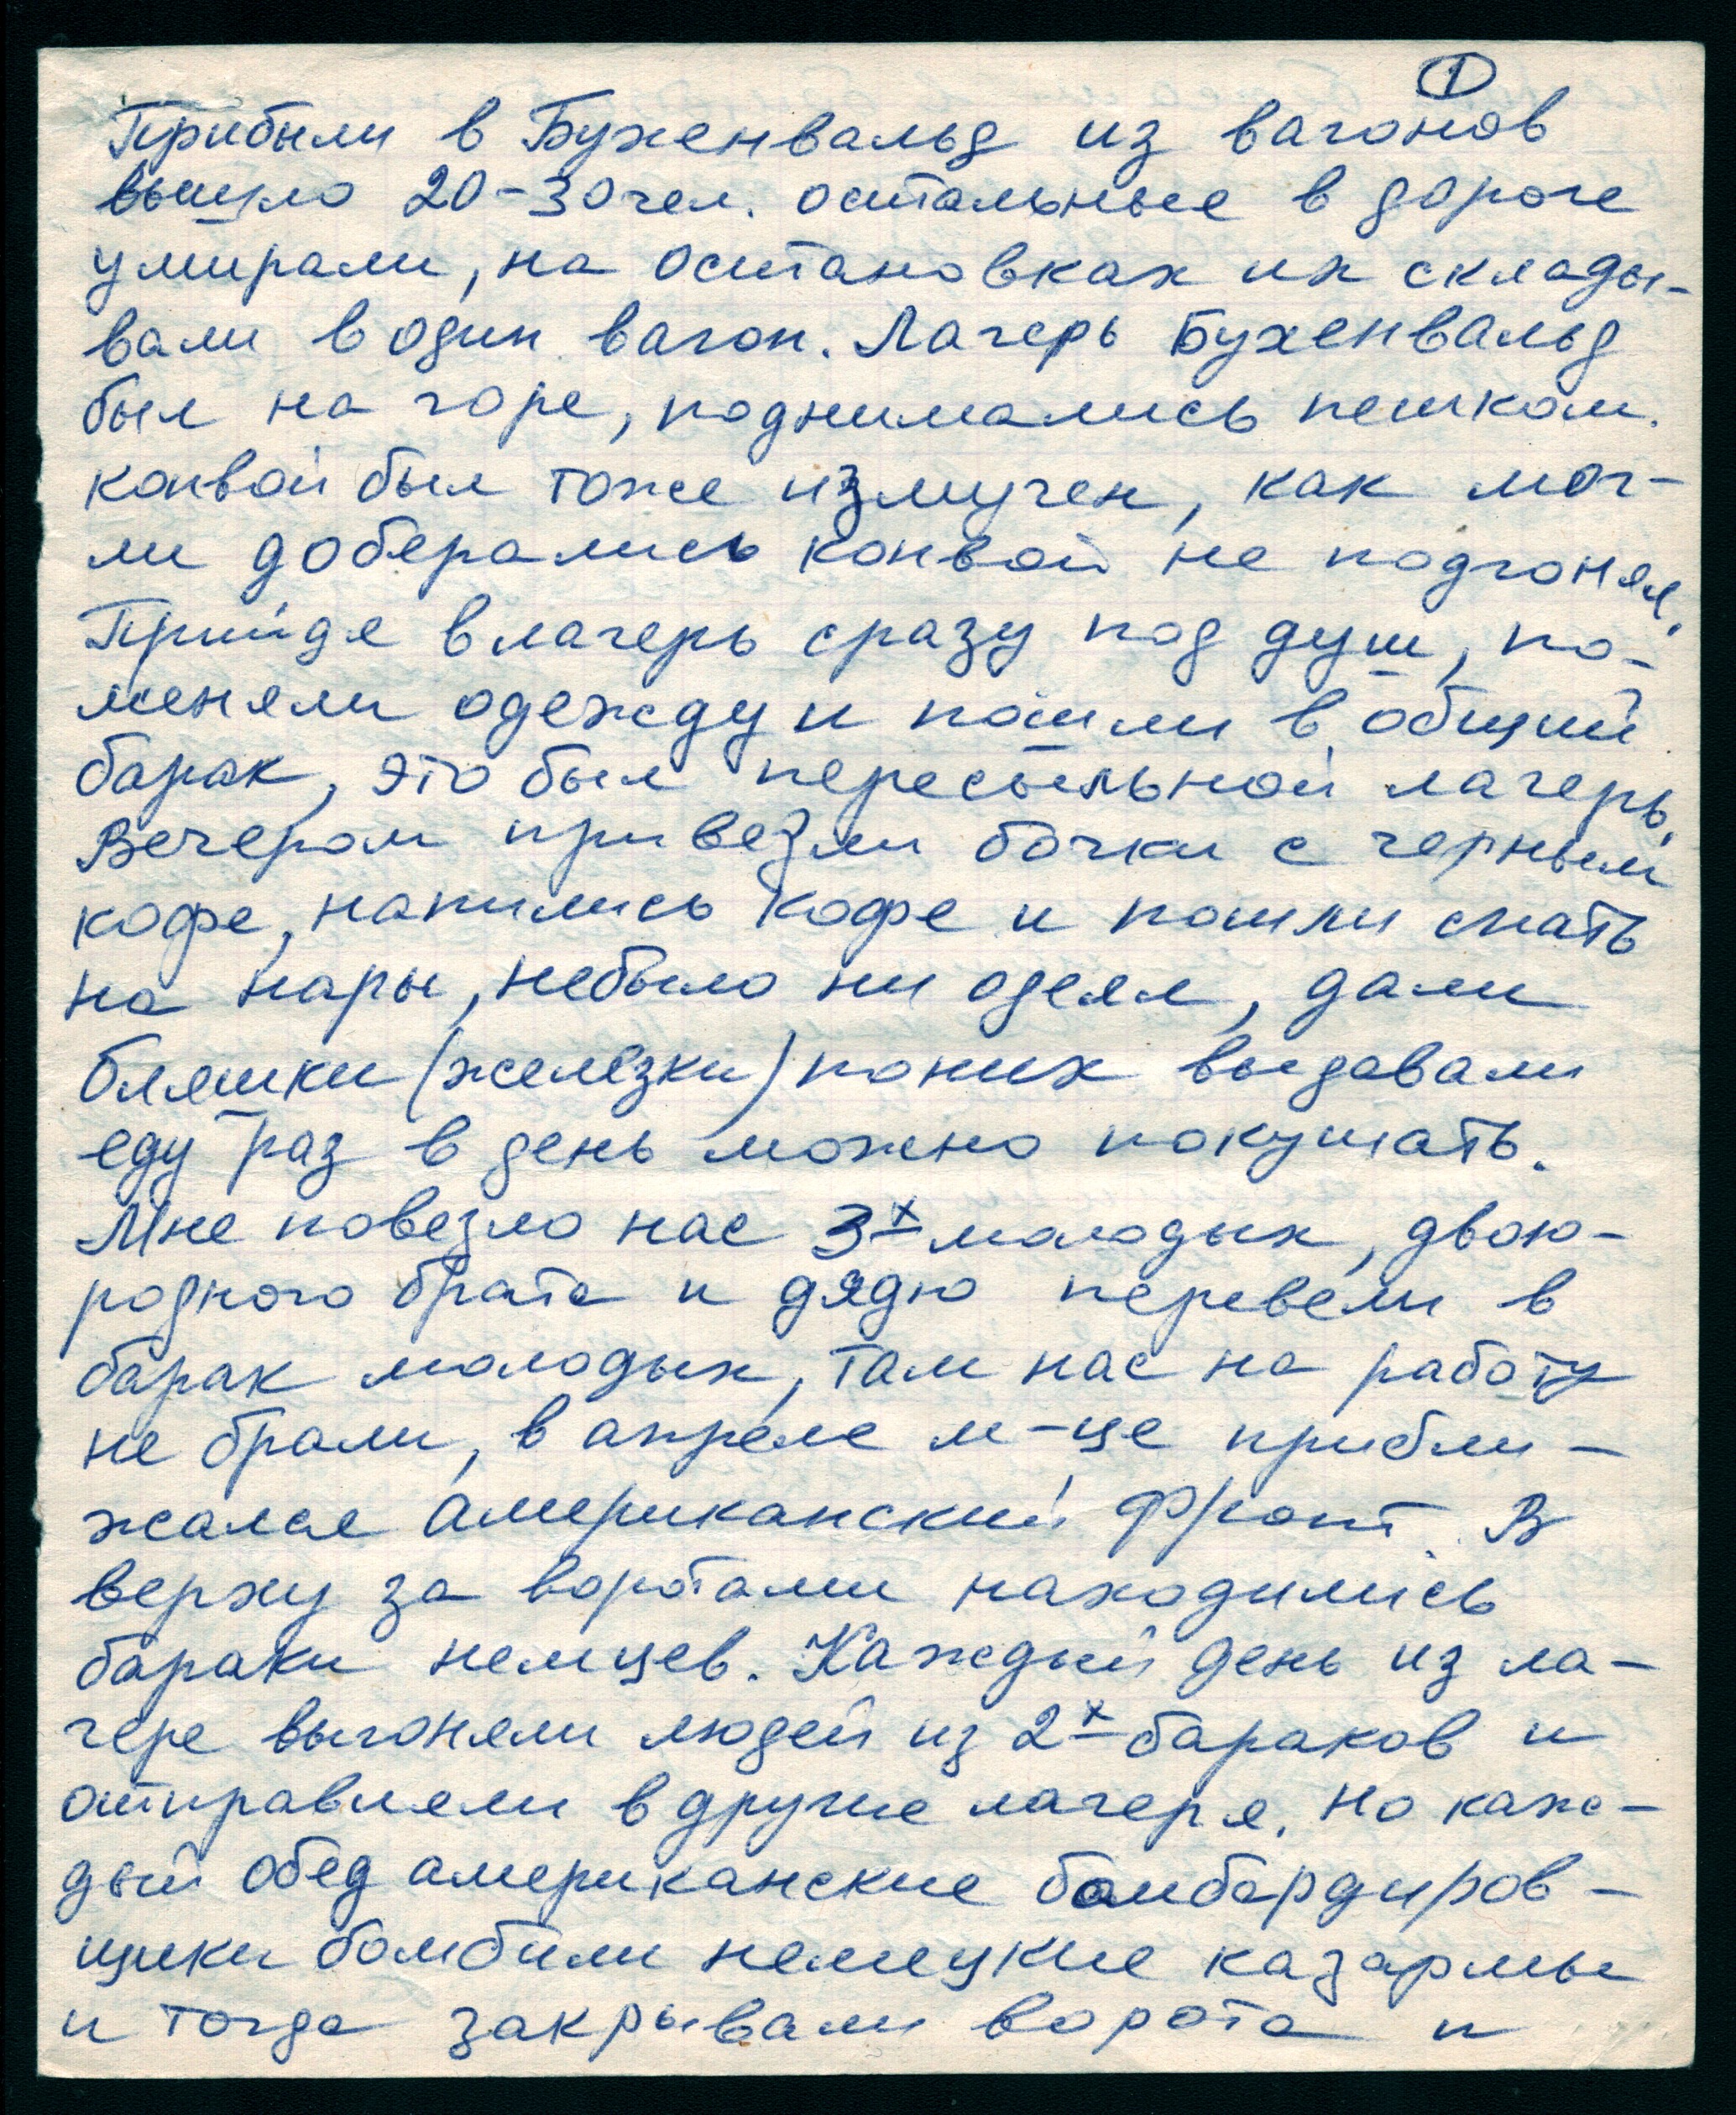 1
Прибыли в Бухенвальд из вагонов
вышло 20-30 чел. остальные в дороге
умирали, на остановках их склады-
вали в один вагон. Лагерь Бухенвальд
был на горе, поднимались пешком.
конвой был тоже измучен, как мог-
ли доберались конвой не подгонял.
Прийдя в лагерь сразу под душ, по-
меняли одежду и пошли в общий
барак, это был пересыльной лагерь.
Вечером привезли бочки с черным
кофе, напились кофе и пошли спать
на нары, небыло ни одеял, дали
бляшки (железки) поних выдавали
еду раз в день можно покушать.
Мне повезло нас 3х молодых, двою-
родного брата и дядю перевели в
барак молодых, там нас на работу
не брали, в апреле м-це прибли-
жался американский фронт. В
верху за воротами находились
бараки немцев. Каждый день из ла-
геря выгоняли людей из 2х бараков и
отправляли в другие лагеря. но каж-
дый обед американские бомбардиров-
щики бомбили немецкие казармы
и тогда закрывали ворота и